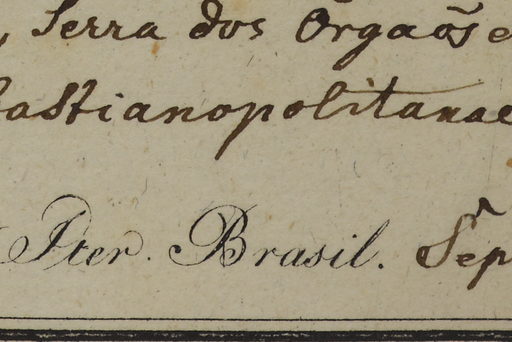 , Serra dos Orgaõs e
bastianopolitanae
Iter Brasil. Sep